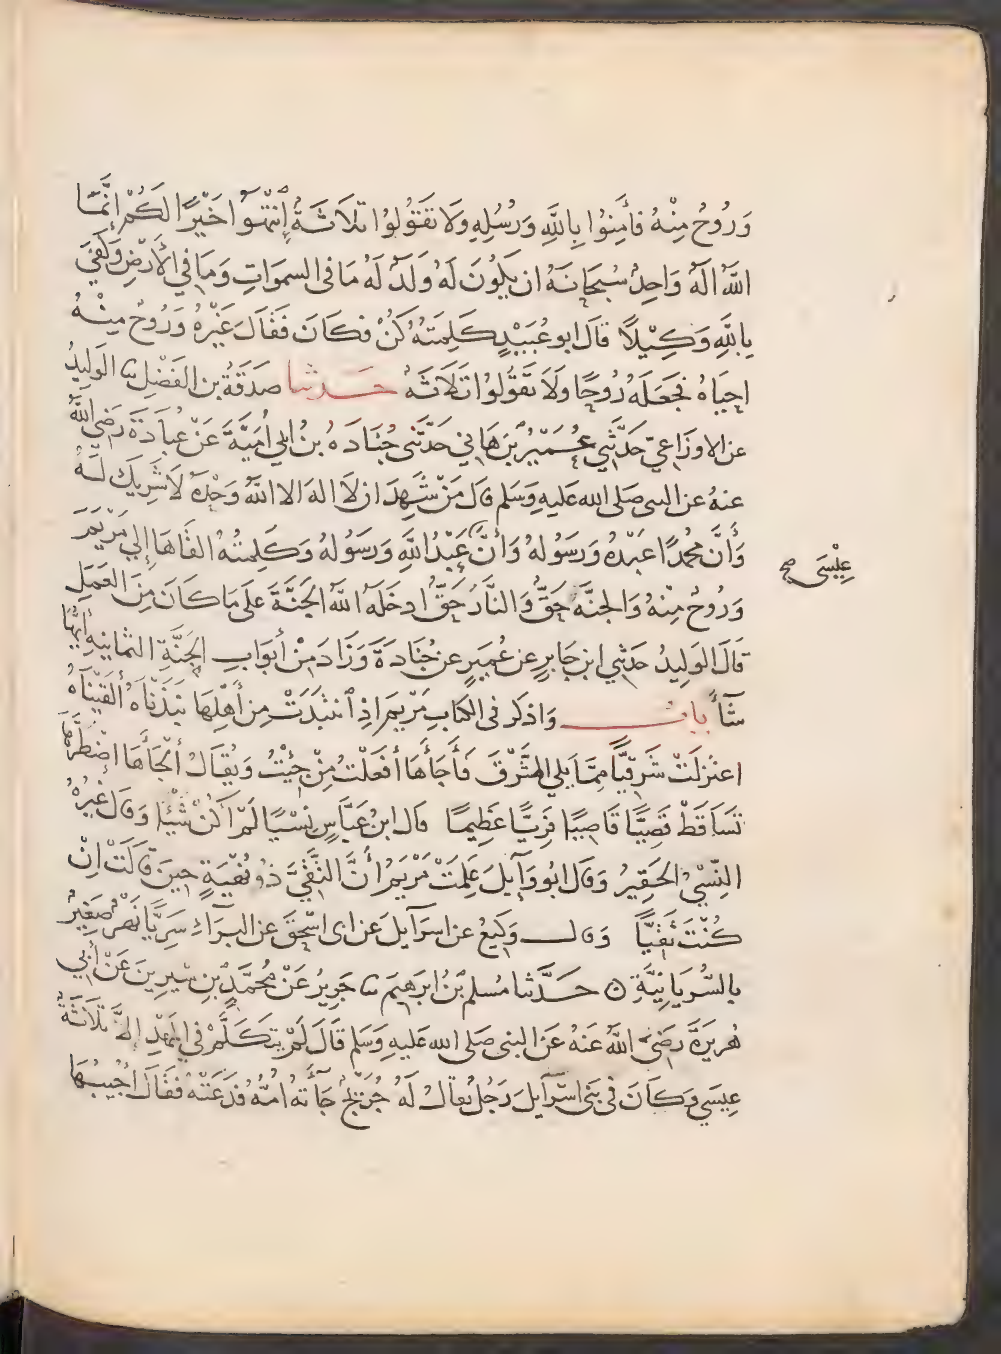 وَرُوحٌ مِنْهُ فَأَمِنُوا بِاللَّهِ وَرُسُلِهِ وَلَا تَقُولُوا ثَلَاثَةٌ إِنْتَهُوا خَيْرًا لَكُمْ إِنَّمَا
اللَّهُ الَهٌ وَاحِدٌ سُبْحَانَهُ ان يَكُونَ لَهُ وَلَدٌ لَهُ مَا فى السموَاتِ وَمَا فِي الْأَرْضِ وَكَفَى
بِاللَّهِ وَكِيْلًا قَالَ ابو عُبَيْدٍ كَلِمَتُهُ كُنْ فَكَانَ فَقَالَ غَيْرُهُ وَرُوحٌ مِنْهُ
احيَاهُ فَجَعَلَهُ رُوحًا وَلَا تَقُولُوا ثَلَاثَةٌ حَدثنا صَدَقَةُ بن الفَضْلِ نا الوَلِيدُ
عن الاوزَاعىّ حَدَّثَنِي عُمَيْرُ بْنُ هَانِي حَدَّثَنِى جُنَادَةُ بنُ ابي اُمَيَّةَ عَنْ عبَادَةَ رَضِيَ اللَّهُ
عنهُ عن النبى صَلى الله عَليهِ وَسَلم قَالَ مَنْ شَهِدَ ان لَا الهَ الا اللَّهُ وَحْدَهُ لَا شَرِيكَ لَهُ
وَأَنَّ مُحمدًا عَبْدُهُ وَرَسُولهُ وَأَنَّ عَبْدُ اللَّهِ وَرَسُولهُ وَكَلِمتُهُ القَاهَا إِلى مَرْيَمَ
عِيْسَى صح
وَرُوحٌ مِنْهُ وَالجنَّةُ حَقٌّ وَالنَّارُ حَقٌّ ادخَلَهُ اللَّهُ الجَنَّةَ عَلى مَا كَانَ مِنَ العَمَلِ
قالَ الوَلِيدُ حَدثنِي ابن جَابرٍ عن عُمَيرٍ عن جُنَادةَ وَزَادَ مِنْ أَبْوَابِ الْجَنَّةِ الثمَانِيَةِ أَيّهَا
شَآءَ بابٌ وَاذكر فى الكتابِ مَرْيَمَ اذِ انْتَبَذَتْ مِن أَهْلِهَا نَبَذْنَاهُ أَلْقَيْنَاهُ
اعتزلَتْ شَرقِيًّا مِمَّا يَلي المَشْرِقَ فَأَجَأَهَا أَفْعَلْتُ مِنْ جِئْتُ وَيُقَالُ أَلْجَأَهَا اضْطَرَّهَا
تَسَاقَطْ قَصِيًّا قَاصِيًا فَرِيًّا عَظِيمًا قال ابنُ عَبَّاسٍ نَسْيًا لَمْ اَكُنْ شَيْئًا وَقال غَيْرُهُ
النِّسْيُ الحَقِيرُ وَقال ابُو وَآيِلَ عَلِمَتْ مَرْيَمُ أَنَّ التَّقِيَّ ذُو نُهْيَةٍ حِينَ قَالَتْ اِنْ
كُنْتَ تَقِيًّا وَقال وَكِيعٌ عن اسرَآيل عَن ابى اسْحقَ عن البرَآءِ سَرِيًّا نَهْرٌ صَغِيرٌ
بِالسُّرْيَانِيَّةِ حَدَّثنا مُسلم بْنُ ابْرهِيمَ نا جَرِيرٌ عَنْ مُحَمَّدِ بْنِ سِيْرِينَ عَنْ أَبِي
هُرَيرَةَ رَضِيَ اللَّهُ عَنهُ عَنِ النبى صَلى الله عَليهِ وَسَلم قَالَ لَمْ يتَكَلَّمْ فِي المَهْدِ اِلَّا ثَلَاثَةٌ
عِيسَي وَكَانَ فى بَنى اسْرَآيلَ رَجُلٌ يُقالُ لَهُ جُرَيْجٌ جَآءَتْهُ امُّهُ فَدَعَتْهُ فَقَالَ اُجِيبُهَا